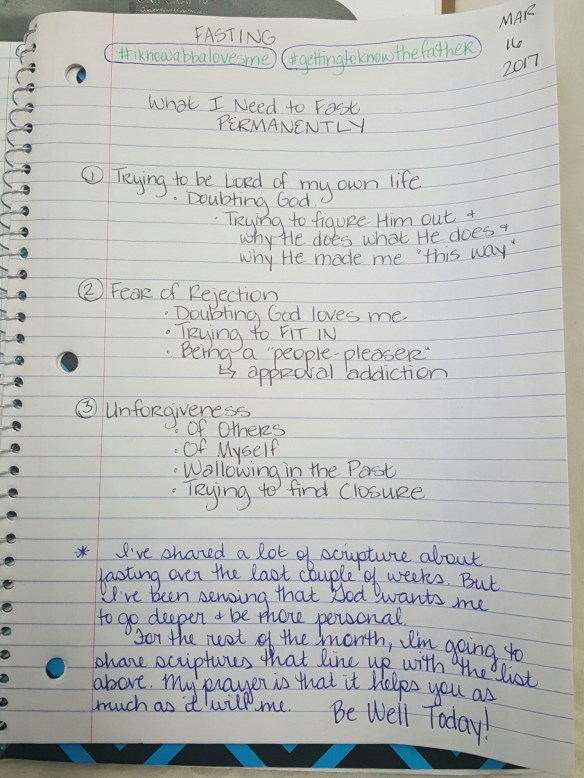 FASTING
#iknowabbalovesme #gettingtoknowthefather
MAR
16
2017
What I Need to Fast
PERMANENTLY
① Trying to be Lord of my own life
· Doubting God
· Trying to figure Him out +
why He does what He does +
why He made me "this way"
② Fear of Rejection
· Doubting God loves me
· Trying to FIT IN
· Being a "people-pleaser"
↳ approval addiction
③ Unforgiveness
· Of Others
· Of Myself
· Wallowing in the Past
· Trying to find Closure
* I've shared a lot of scripture about
fasting over the last couple of weeks. But
I've been sensing that God wants me
to go deeper + be more personal.
For the rest of the month, I'm going to
share scriptures that line up with the list
above. My prayer is that it helps you as
much as it will me. Be Well Today!